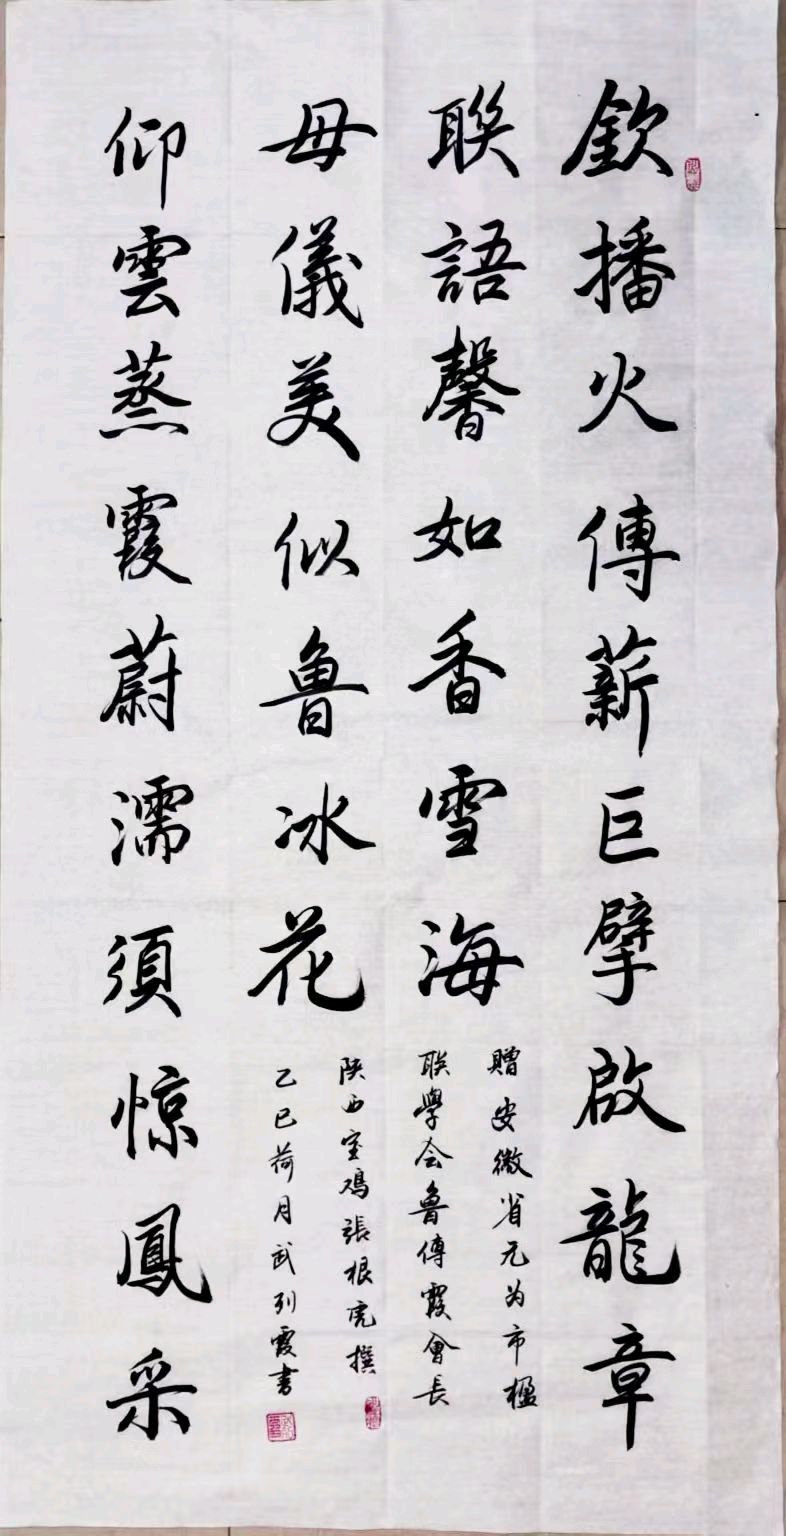 欽播火傳薪巨擘啟龍章
聯語馨如香雪海
仰雲蒸霞蔚濡須惊鳳采
母儀美似魯冰花
贈安徽省无为市楹
联學会魯傳霞會長
陕西宝鸡張根虎撰
乙巳荷月武列霞書